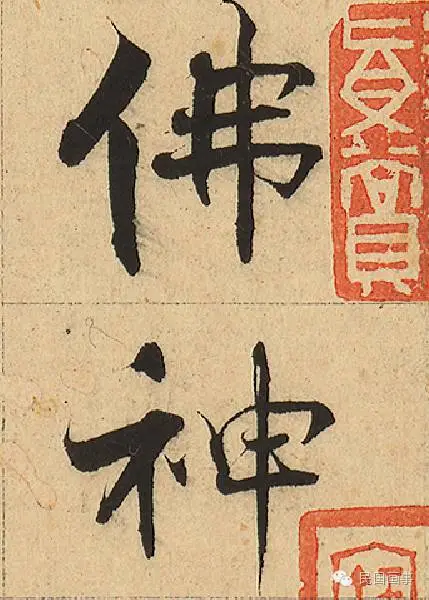 佛
神
民国画事